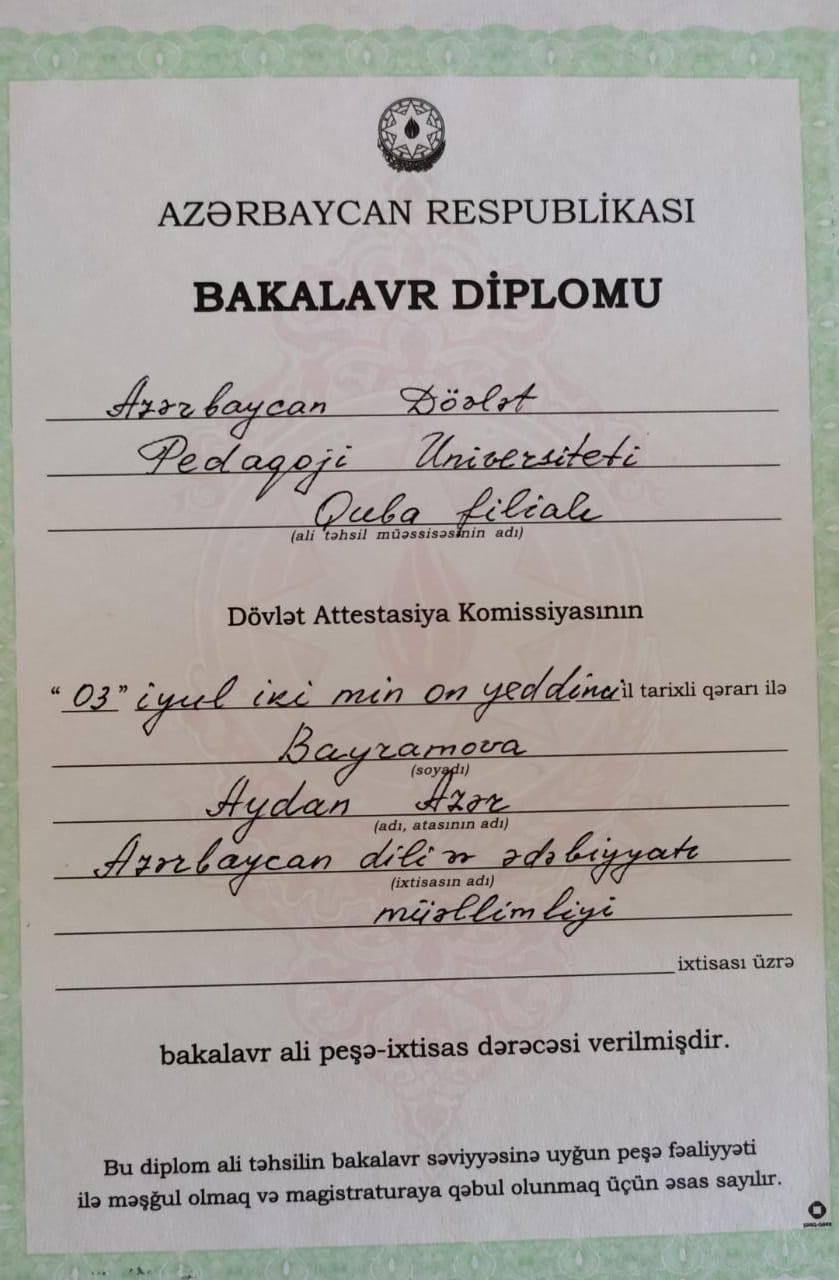 AZƏRBAYCAN RESPUBLİKASI
BAKALAVR DİPLOMU
Azərbaycan Dövlət
Pedaqoji Universiteti
Quba filialı
(ali təhsil müəssisəsinin adı)
Dövlət Attestasiya Komissiyasının
“ 03 ” iyul iki min on yeddinci il tarixli qərarı ilə
Bayramova
(soyadı)
Aydan Azər
(adı, atasının adı)
Azərbaycan dili və ədəbiyyatı
(ixtisasın adı)
müəllimliyi
ixtisası üzrə
bakalavr ali peşə-ixtisas dərəcəsi verilmişdir.
Bu diplom ali təhsilin bakalavr səviyyəsinə uyğun peşə fəaliyyəti
ilə məşğul olmaq və magistraturaya qəbul olunmaq üçün əsas sayılır.